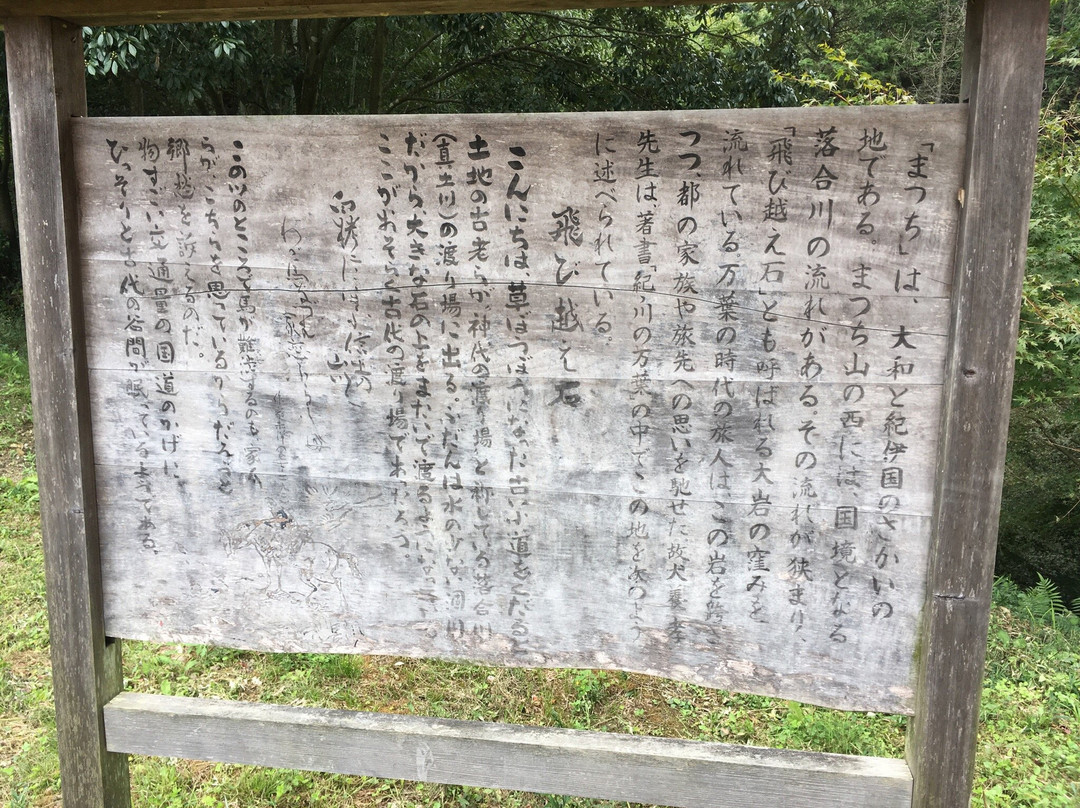 「まつち」は、大和と紀伊国のさかいの
地である。まつち山の西には、国境となる
落合川の流れがある。その流れが狭まり、
「飛び越え石」とも呼ばれる大岩の窪みを
流れている。万葉の時代の旅人は、この岩を跨ぎ
つつ、都の家族や旅先への思いを馳せた。故犬養孝
先生は、著書「紀ノ川の万葉」の中でこの地を次のよう
に述べられている。
飛び越え石
こんにちは、草ぼうぼうになった古い小道をたどると
土地の古老らが、神代の渡り場と称している落合川
(真土川)の渡り場に出る。ふだんは水の少ない河川
だから大きな石の上をまたいで渡るようになっている
ここがおそらく古代の渡り場であろう。
白栲に
このゾのところで馬が難渋するのも、家人
らが、こちらを思っているからだろうと
郷愁を訴えるのだ。
物すごい交通量の国道のかげに、
ひっそりと古代の谷間が眠っている